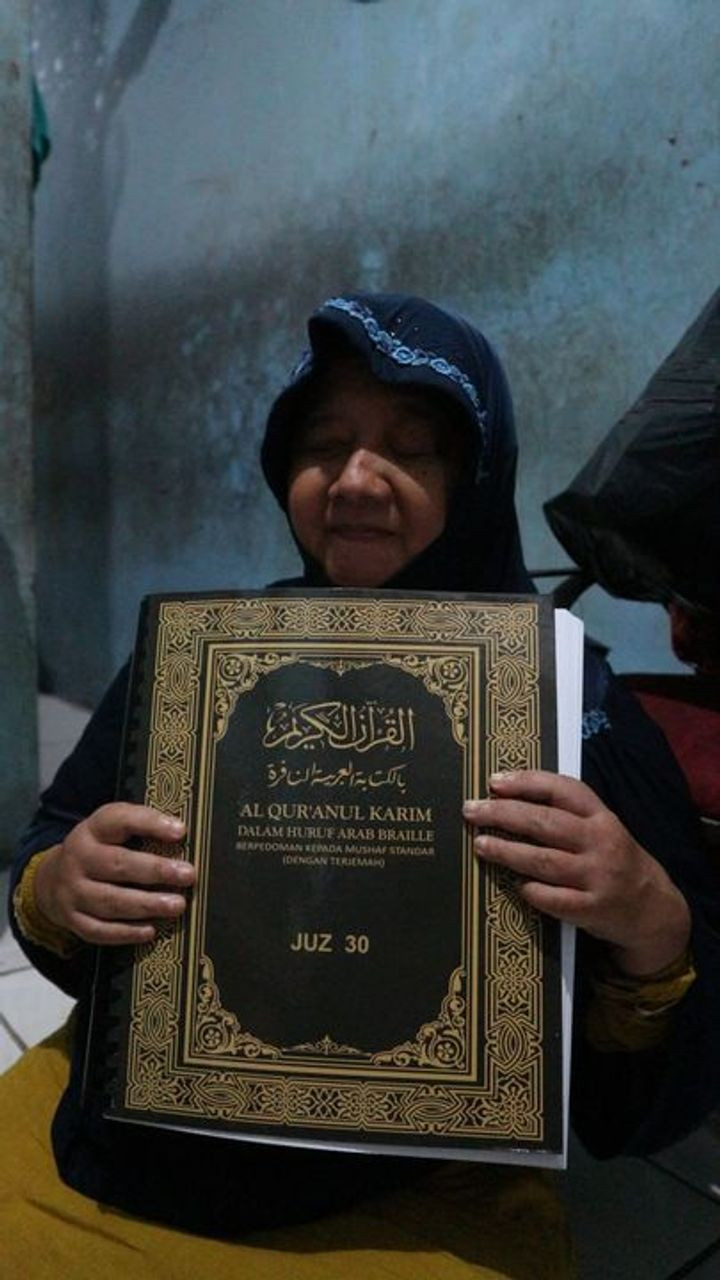 القرآن الكريم
بالكتابة العربية النافرة
AL QUR'ANUL KARIM
DALAM HURUF ARAB BRAILLE
BERPEDOMAN KEPADA MUSHAF STANDAR
(DENGAN TERJEMAH)
JUZ 30